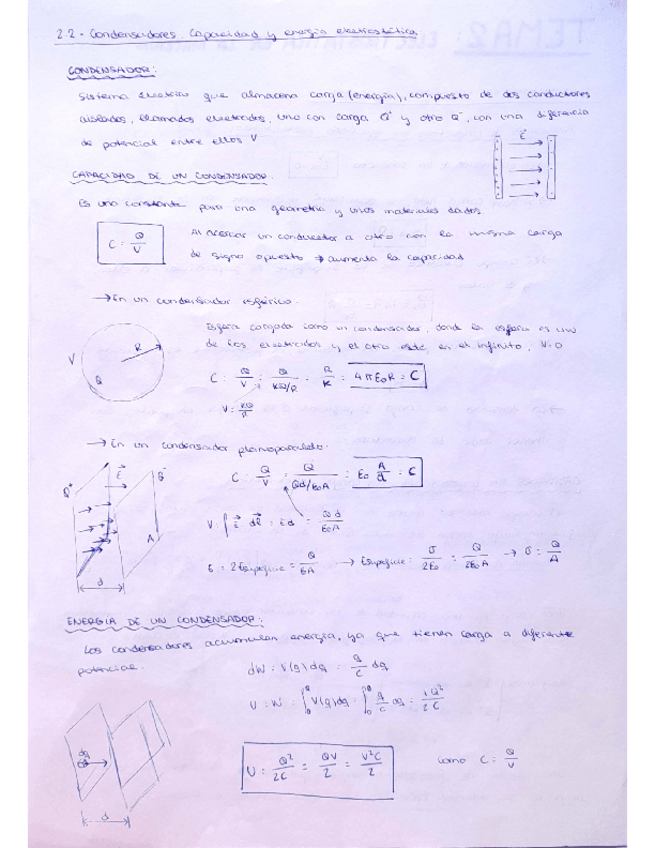 2.2- Condensadores. Capacidad y energía electrostática
CONDENSADOR:
Sistema eléctrico que almacena carga (energía), compuesto de dos conductores
aislados, llamados electrodos, uno con carga Q⁺ y otro Q⁻, con una diferencia
de potencial entre ellos V
E⃗
CAPACIDAD DE UN CONDENSADOR.
Es una constante para una geometría y unos materiales dados.
C = Q/V
Al acercar un conductor a otro con la misma carga
de signo opuesto → aumenta la capacidad
→ En un condensador esférico.
Esfera cargada como un condensador, donde la esfera es uno
de los electrodos y el otro está en el infinito, V=0
V R Q
C = Q/V = Q/(KQ/R) = R/K = 4πε₀R = C
V = KQ/R
→ En un condensador planoparalelo.
Q⁺ E⃗ Q⁻ A d
C = Q/V = Q/(Qd/ε₀A) = ε₀ A/d = C
V = ∫ E⃗ dl⃗ = Ed = Qd/ε₀A
E = 2Esuperficie = Q/εA → Esuperficie = σ/2ε₀ = Q/2ε₀A → σ = Q/A
ENERGÍA DE UN CONDENSADOR:
Los condensadores acumulan energía, ya que tienen carga a diferente
potencial.
dW = V(q)dq = q/C dq
U = W = ∫₀^Q V(q)dq = ∫₀^Q q/C dq = 1Q²/2C
dq d
U = Q²/2C = QV/2 = V²C/2
como C = Q/V